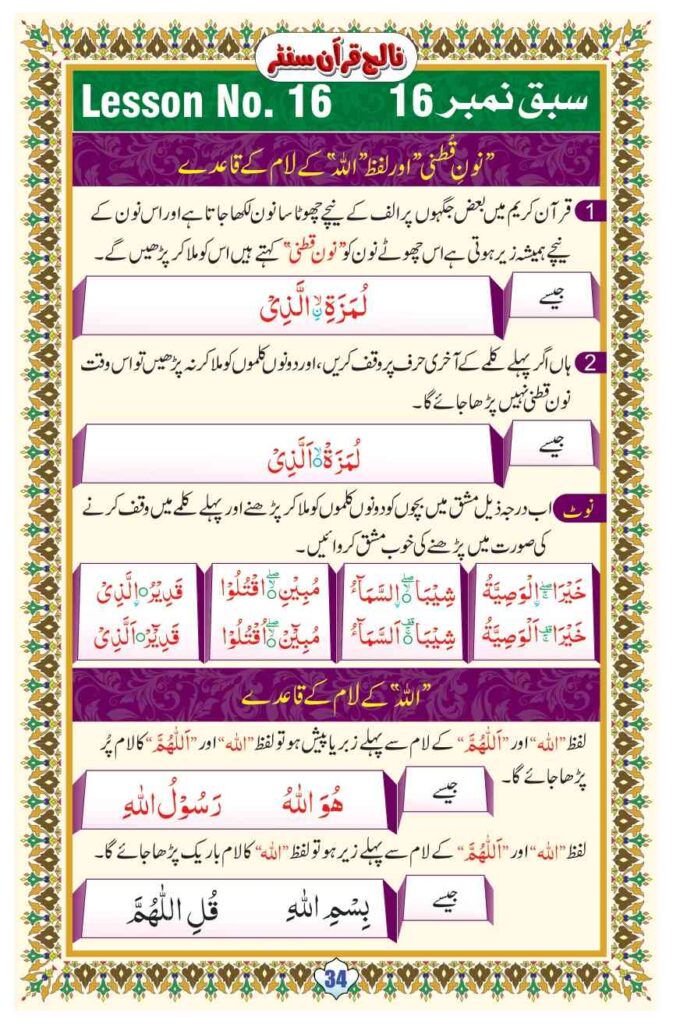 نالج قرآن سنٹر
Lesson No. 16 سبق نمبر 16
”نونِ قُطنی“ اور لفظ ”اللہ“ کے لام کے قاعدے
1 قرآن کریم میں بعض جگہوں پر الف کے نیچے چھوٹا سا نون لکھا جاتا ہے اور اس نون کے
نیچے ہمیشہ زیر ہوتی ہے اس چھوٹے نون کو ”نون قطنی“ کہتے ہیں اس کو ملا کر پڑھیں گے۔
جیسے
لُمَزَةِ ۙ۟نِ الَّذِیْ
2 ہاں اگر پہلے کلمے کے آخری حرف پر وقف کریں، اور دونوں کلموں کو ملا کر نہ پڑھیں تو اس وقت
نون قطنی نہیں پڑھا جائے گا۔
جیسے
لُمَزَةْ ۙ اَلَّذِیْ
نوٹ اب درجہ ذیل مشق میں بچوں کو دونوں کلموں کو ملا کر پڑھنے اور پہلے کلمے میں وقف کرنے
کی صورت میں پڑھنے کی خوب مشق کروائیں۔
خَیْرَا ۖۚ الْوَصِیَّةُ شِیْبَا ۖ السَّمَآءُ مُبِیْنِ ۖ اقْتُلُوْا قَدِیْرُ الَّذِیْ
خَیْرَا اَلْوَصِیَّةُ شِیْبَا اَلسَّمَآءُ مُبِیْنْ اُقْتُلُوْا قَدِیْرْ اَلَّذِیْ
”اللہ“ کے لام کے قاعدے
لفظ ”اللہ“ اور ”اَللّٰهُمَّ“ کے لام سے پہلے زبر یا پیش ہو تو لفظ ”اللہ“ اور ”اَللّٰهُمَّ“ کا لام پُر
پڑھا جائے گا۔
جیسے
هُوَ اللّٰهُ رَسُوْلُ اللّٰهِ
لفظ ”اللہ“ اور ”اَللّٰهُمَّ“ کے لام سے پہلے زیر ہو تو لفظ ”اللہ“ کا لام باریک پڑھا جائے گا۔
جیسے
بِسْمِ اللّٰهِ قُلِ اللّٰهُمَّ
34